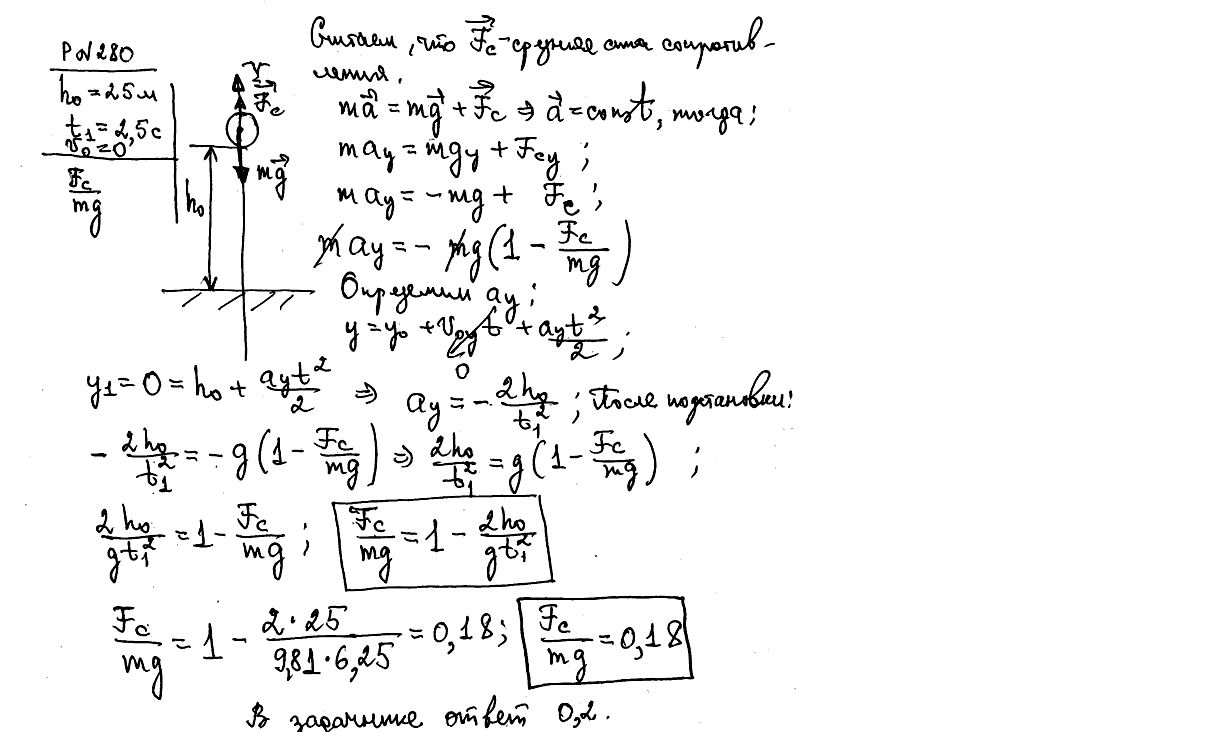 Р №280
h₀ = 25 м
t₁ = 2,5 с
v₀ = 0
Fс/mg
Y
F⃗с
mg⃗
h₀
Считаем, что F⃗с - средняя сила сопротив-
ления.
ma⃗ = mg⃗ + F⃗с ⇒ a⃗ = const, тогда;
may = mgy + Fсy ;
may = -mg + Fс ;
may = - mg(1 - Fс/mg)
Определим ay ;
y = y₀ + v₀yt + ayt²/2 ;
0
y₁ = 0 = h₀ + ayt²/2 ⇒ ay = - 2h₀/t₁² ; После подстановки:
- 2h₀/t₁² = -g(1 - Fс/mg) ⇒ 2h₀/t₁² = g(1 - Fс/mg) ;
2h₀/gt₁² = 1 - Fс/mg ; Fс/mg = 1 - 2h₀/gt₁²
Fс/mg = 1 - 2·25/9,81·6,25 = 0,18; Fс/mg = 0,18
В задачнике ответ 0,2.